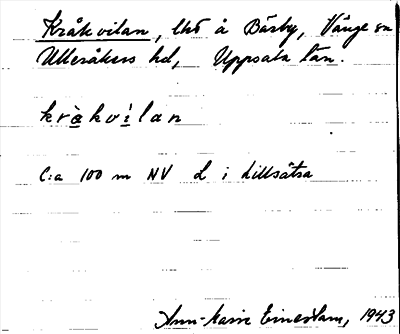 Kråkvilan, lht å Bärby, Vänge sn
Ulleråkers hd, Uppsala län.
kråkvilan
C:a 100 m NV L i Lillsätra
Ann-Marie Einestam, 1943